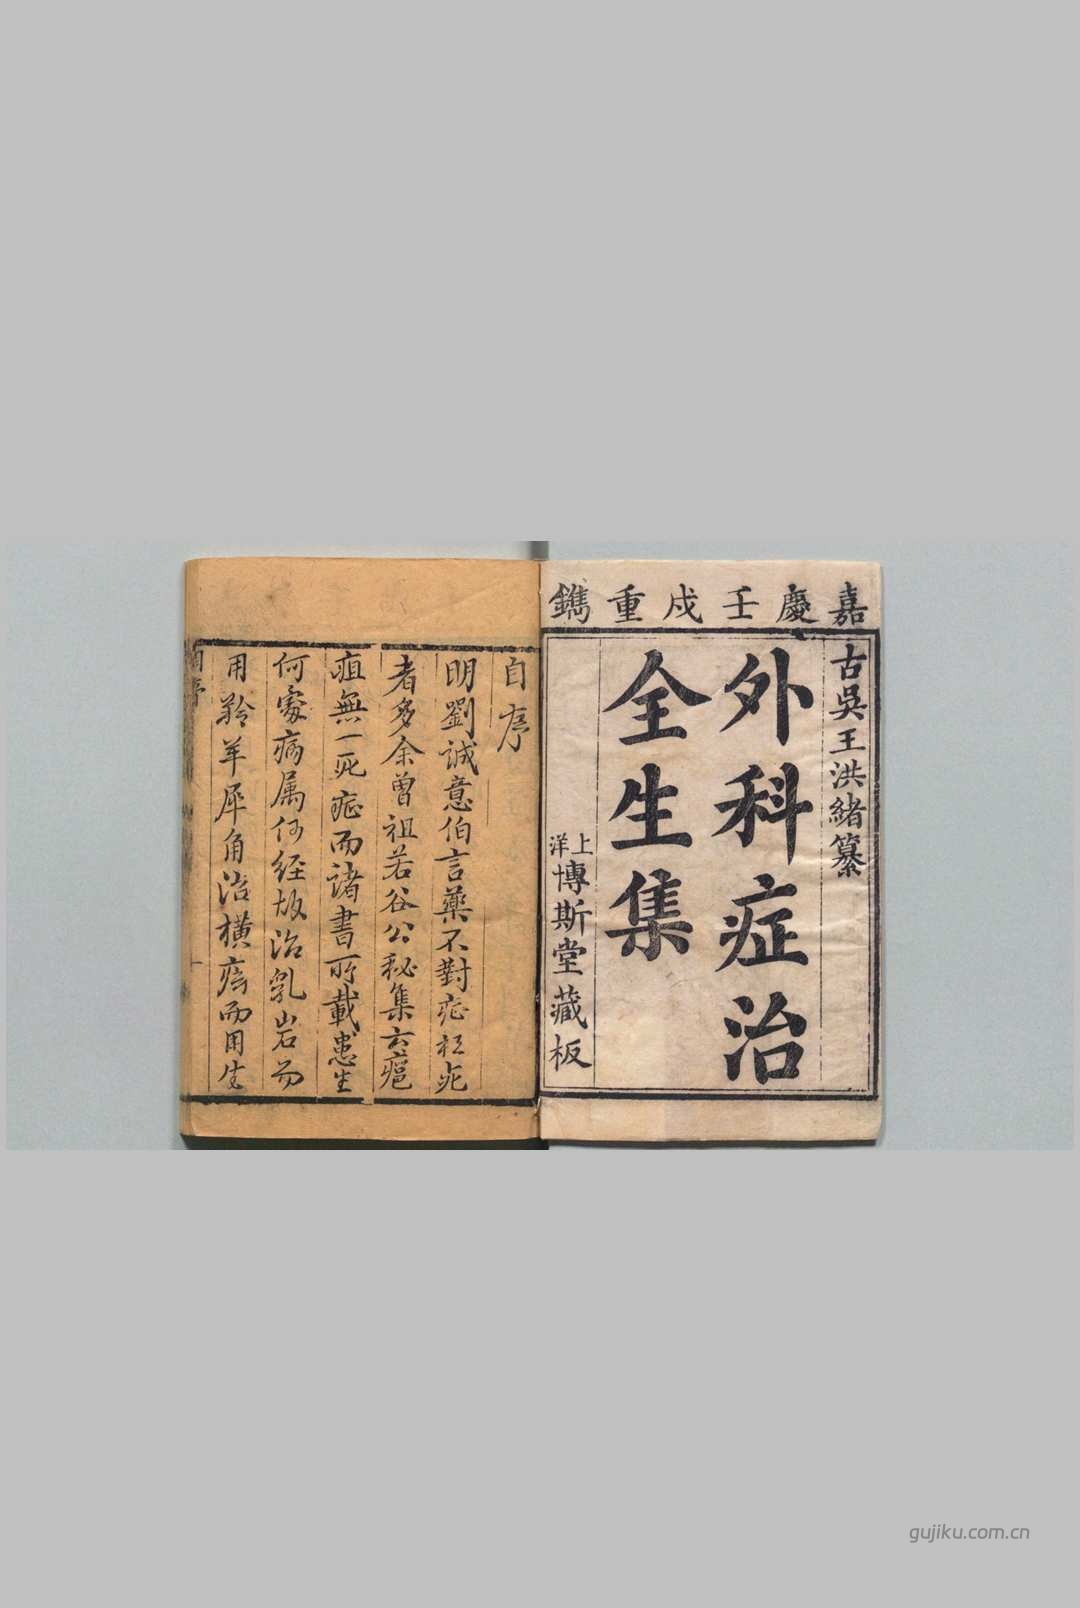 嘉慶壬戌重鐫
古吳王洪緒纂
外科症治
全生集
上洋博斯堂藏板
自序
明劉誠意伯言藥不對症枉死
者多余曾祖若谷公秘集云癰
疽無一死症而諸書所載患生
何處病属何经故治乳岩而
用羚羊犀角治橫痃而用生
自序
一
gujiku.com.cn